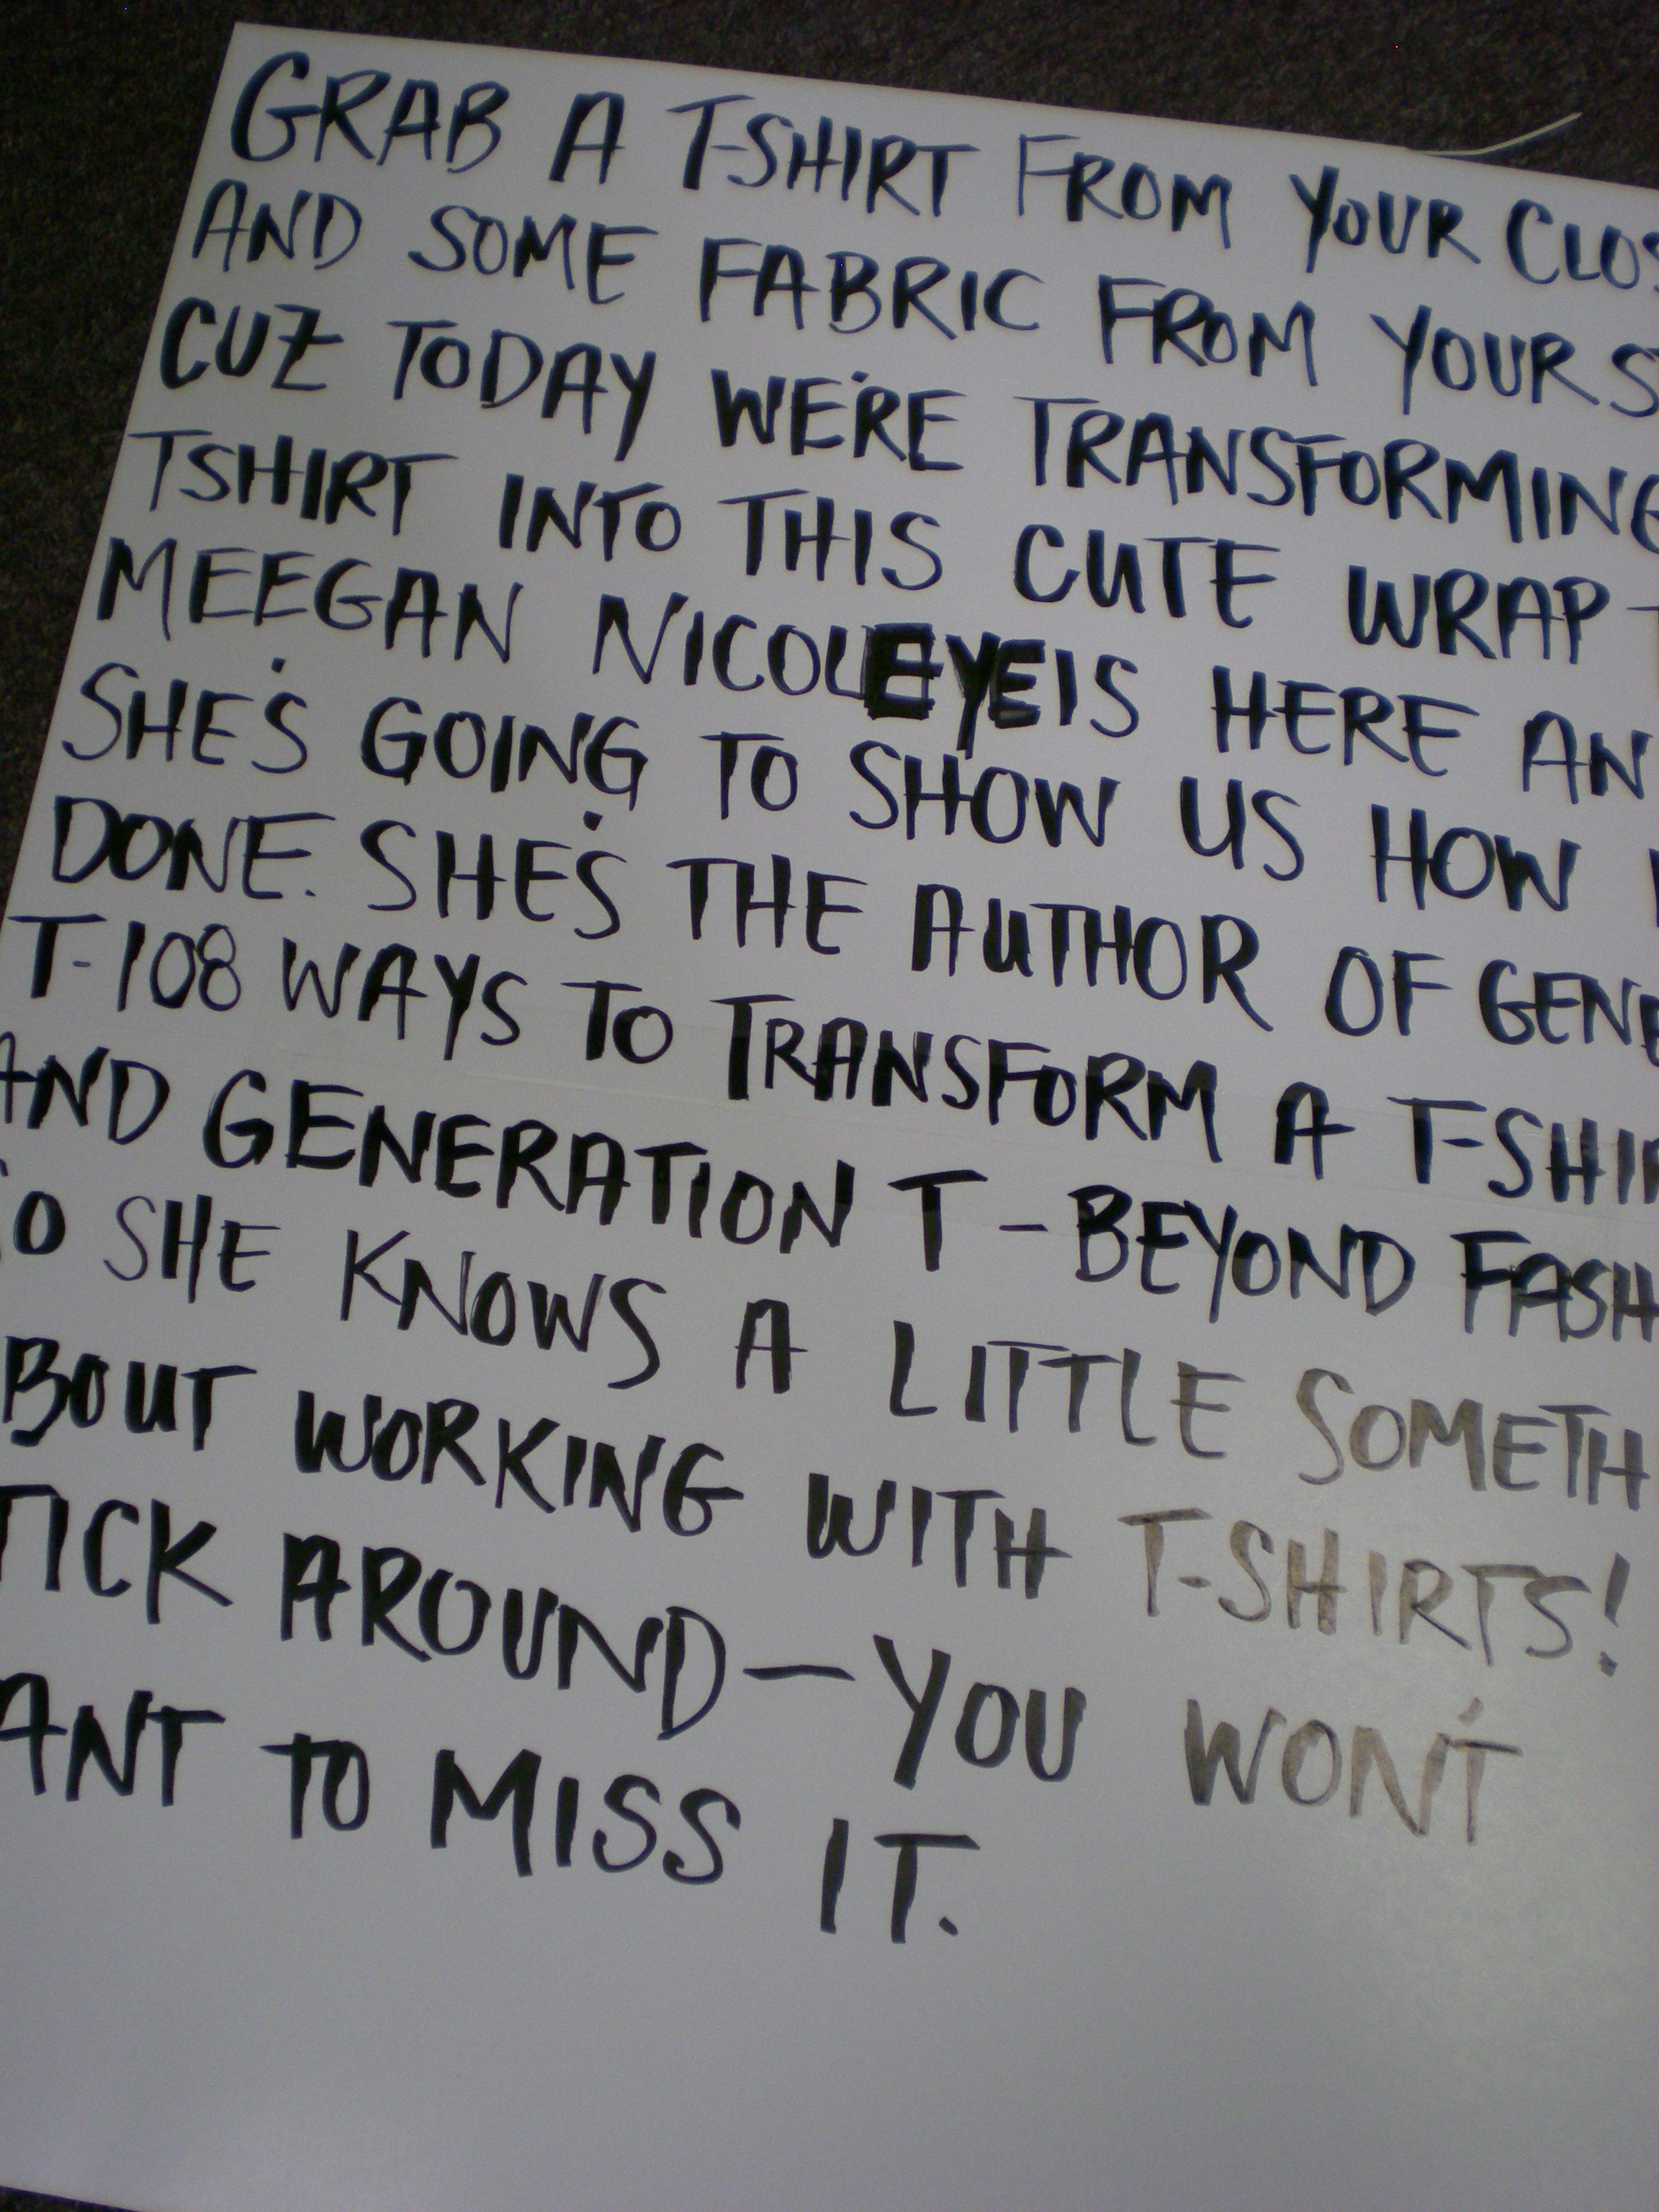 GRAB A T-SHIRT FROM YOUR CLOS
AND SOME FABRIC FROM YOUR S
CUZ TODAY WE'RE TRANSFORMING
TSHIRT INTO THIS CUTE WRAP
MEEGAN NICOLEYEIS HERE AN
SHE'S GOING TO SHOW US HOW
DONE. SHE'S THE AUTHOR OF GENE
T-108 WAYS TO TRANSFORM A T-SHIR
AND GENERATION T-BEYOND FASH
O SHE KNOWS A LITTLE SOMETH
BOUT WORKING WITH T-SHIRTS!
TICK AROUND-YOU WON'T
ANT TO MISS IT.